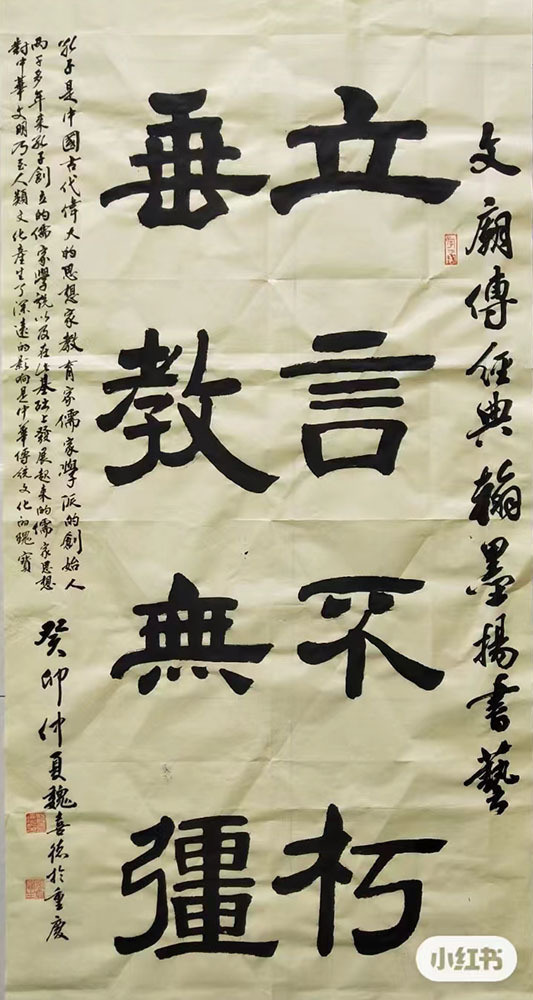 文廟傳經典翰墨揚書藝
立言不朽
垂教無彊
孔子是中國古代偉大的思想家教育家儒家學派的創始人
兩千多年來孔子創立的儒家學說以及在此基础上發展起來的儒家思想
對中華文明乃至人類文化產生了深遠的影响是中華傳統文化的瑰寶
癸卯仲夏魏喜德於重慶
小红书